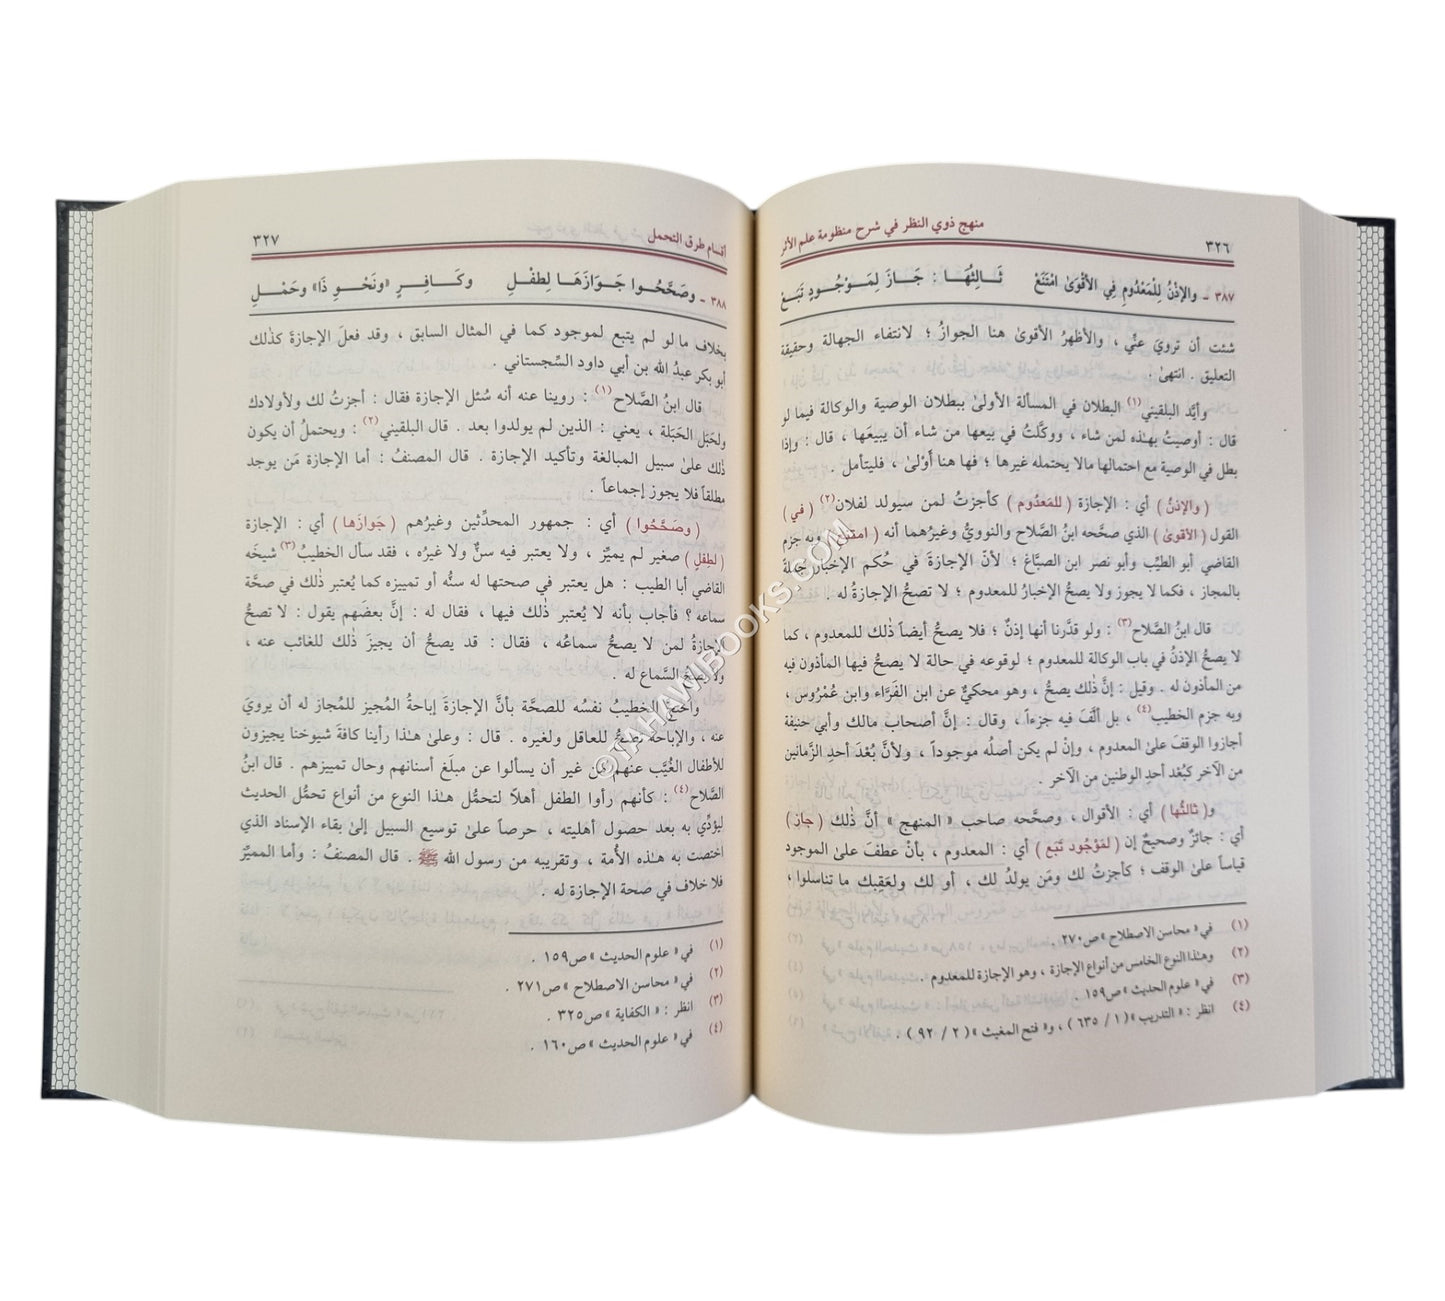 ٣٢٦
منهج ذوي النظر في شرح منظومة علم الأثر
٣٨٧ ـ والإذْنُ لِلْمَعْدُومِ فِي الأقْوَىٰ امْتَنَعْ ثَـالِثُهَـا : جَـازَ لِمَـوْجُـودٍ تَبَـعْ
شئت أن ترويَ عنّي ، والأظهرُ الأقوىٰ هنا الجوازُ ؛ لانتفاء الجهالة وحقيقة
التعليق . انتهىٰ .
وأيَّد البلقيني(١) البطلان في المسألة الأولىٰ ببطلان الوصية والوكالة فيما لو
قال : أوصيتُ بهـٰذه لمن شاء ، ووكَّلتُ في بيعها من شاء أن يبيعَها ، قال : وإذا
بطل في الوصية مع احتمالها مالا يحتمله غيرها ؛ فها هنا أَوْلىٰ ، فليتأمل .
( والإذنُ ) أي : الإجازة ( للمَعدُوم ) كأجزتُ لمن سيولد لفلان(٢) ( في )
القول ( الأقوىٰ ) الذي صحَّحه ابنُ الصَّلاح والنوويُّ وغيرُهما أنه ( امتنع ) وبه جزم
القاضي أبو الطيِّب وأبو نصر ابن الصبَّاغ ؛ لأنّ الإجازةَ في حُكم الإخبار جملةً
بالمجاز ، فكما لا يجوز ولا يصحُّ الإخبارُ للمعدوم ؛ لا تصحُّ الإجازةُ له .
قال ابنُ الصَّلاح(٣) : ولو قدَّرنا أنها إذنٌ ؛ فلا يصحُّ أيضاً ذٰلك للمعدوم ، كما
لا يصحُّ الإذنُ في باب الوكالة للمعدوم ؛ لوقوعه في حالة لا يصحُّ فيها المأذون فيه
من المأذون له . وقيل : إنَّ ذٰلك يصحُّ ، وهو محكيٌّ عن ابن الفَرَّاء وابن عُمْرُوس ،
وبه جزم الخطيب(٤) ، بل ألَّفَ فيه جزءاً ، وقال : إنَّ أصحاب مالك وأبي حنيفة
أجازوا الوقفَ علىٰ المعدوم ، وإنْ لم يكن أصلُه موجوداً ، ولأنَّ بُعْدَ أحدِ الزَّمانين
من الآخر كبُعْد أحدِ الوطنين من الآخر .
و( ثالثُها ) أي : الأقوال ، وصحَّحه صاحب « المنهج » أنَّ ذٰلك ( جَازَ )
أي : جائزٌ وصحيحٌ إن ( لمَوْجُود تَبَع ) أي : المعدوم ، بأنْ عطفَ علىٰ الموجود
قياساً علىٰ الوقف ؛ كأجزتُ لك ومَن يولدُ لك ، أو لك ولعَقِبك ما تناسلوا ،
(١) في « محاسن الاصطلاح » ص٢٧٠ .
(٢) وهـٰذا النوع الخامس من أنواع الإجازة ، وهو الإجازة للمعدوم .
(٣) في « علوم الحديث » ص١٥٩ .
(٤) انظر : « التدريب » ( ١ / ٦٣٥ ) ، و« فتح المغيث » ( ٢ / ٩٢ ) .
أقسام طرق التحمل
٣٢٧
٣٨٨ ـ وصَحَّحُـوا جَـوَازَهَـا لِطفْـلِ وكَـافِـرٍ «ونَحْـوِ ذَا» وحَمْـلِ
بخلاف مالو لم يتبع لموجود كما في المثال السابق ، وقد فعلَ الإجازةَ كذٰلك
أبو بكر عبدُ الله بن أبي داود السِّجستاني .
قال ابنُ الصَّلاح(١) : روينا عنه أنه سُئل الإجازة فقال : أجزتُ لك ولأولادك
ولحَبَل الحَبَلة ، يعني : الذين لم يولدوا بعد . قال البلقيني(٢) : ويحتملُ أن يكون
ذٰلك علىٰ سبيل المبالغة وتأكيد الإجازة . قال المصنفُ : أما الإجازة مَن يوجد
مطلقاً فلا يجوز إجماعاً .
( وصَحَّحُوا ) أي : جمهور المحدِّثين وغيرُهم ( جَوازَها ) أي : الإجازة
( لطِفلٍ ) صغير لم يميِّز ، ولا يعتبر فيه سنٌّ ولا غيرُه ، فقد سأل الخطيبُ(٣) شيخَه
القاضي أبا الطيب : هل يعتبر في صحتها له سنُّه أو تمييزه كما يُعتبر ذٰلك في صحَّة
سماعه ؟ فأجاب بأنه لا يُعتبر ذٰلك فيها ، فقال له : إنَّ بعضَهم يقول : لا تصحُّ
الإجازةُ لمن لا يصحُّ سماعُه ، فقال : قد يصحُّ أن يجيزَ ذٰلك للغائب عنه ،
ولا يصحُّ السَّماع له .
واحتجَّ الخطيبُ نفسُه للصحَّة بأنَّ الإجازةَ إباحةُ المُجيز للمُجاز له أن يرويَ
عنه ، والإباحة تصحُّ للعاقل ولغيره . قال : وعلىٰ هـٰذا رأينا كافةَ شيوخنا يجيزون
للأطفال الغُيَّب عنهم من غير أن يسألوا عن مبلَغ أسنانهم وحال تمييزهم . قال ابنُ
الصَّلاح(٤) : كأنهم رأوا الطفل أهلاً لتحمُّل هـٰذا النوع من أنواع تحمُّل الحديث
ليؤدِّي به بعد حصول أهليته ، حرصاً علىٰ توسيع السبيل إلىٰ بقاء الإسناد الذي
اختصت به هـٰذه الأُمة ، وتقريبه من رسول الله ﷺ . قال المصنفُ : وأما المميزُ
فلا خلاف في صحة الإجازة له .
(١) في « علوم الحديث » ص١٥٩ .
(٢) في « محاسن الاصطلاح » ص٢٧١ .
(٣) انظر : « الكفاية » ص٣٢٥ .
(٤) في « علوم الحديث » ص١٦٠ .
©TAHAWIBOOKS.COM